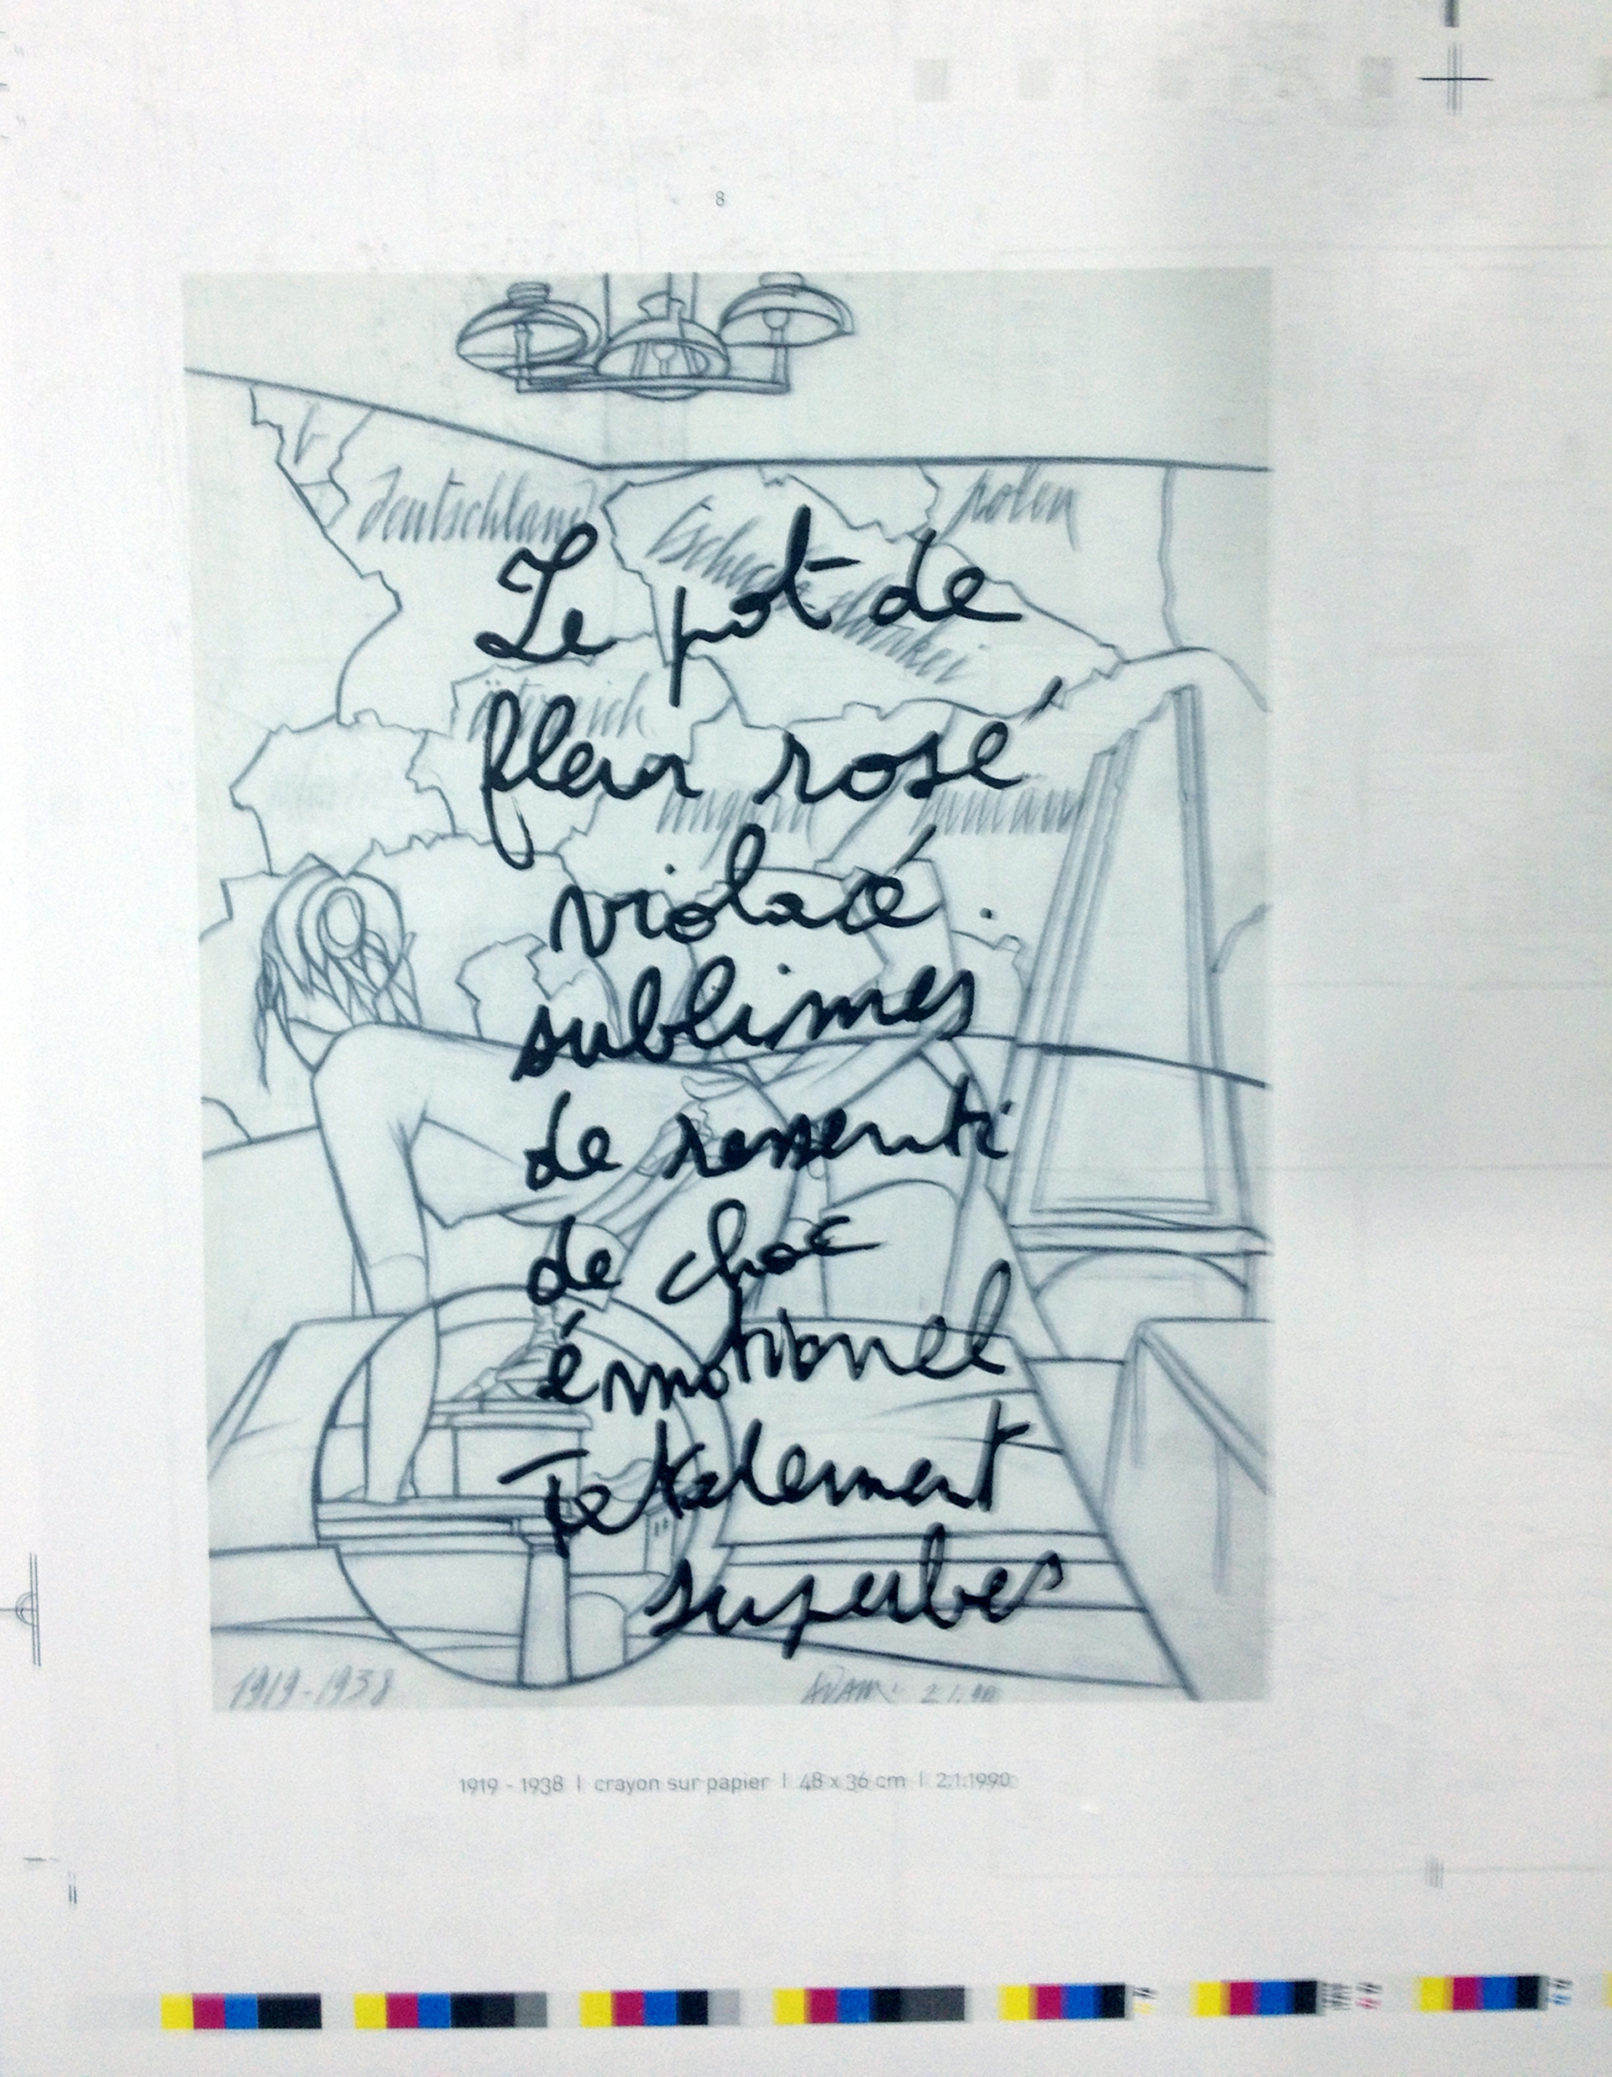 8
Deutschland
Polen
Le pot de
fleur rosé
violacé.
sublimes
de ressenti
de choc
émotionnel
superbes
1919-1938
ADAMI 2.1.90
1919 - 1938 | crayon sur papier | 48 x 36 cm | 2.1.1990